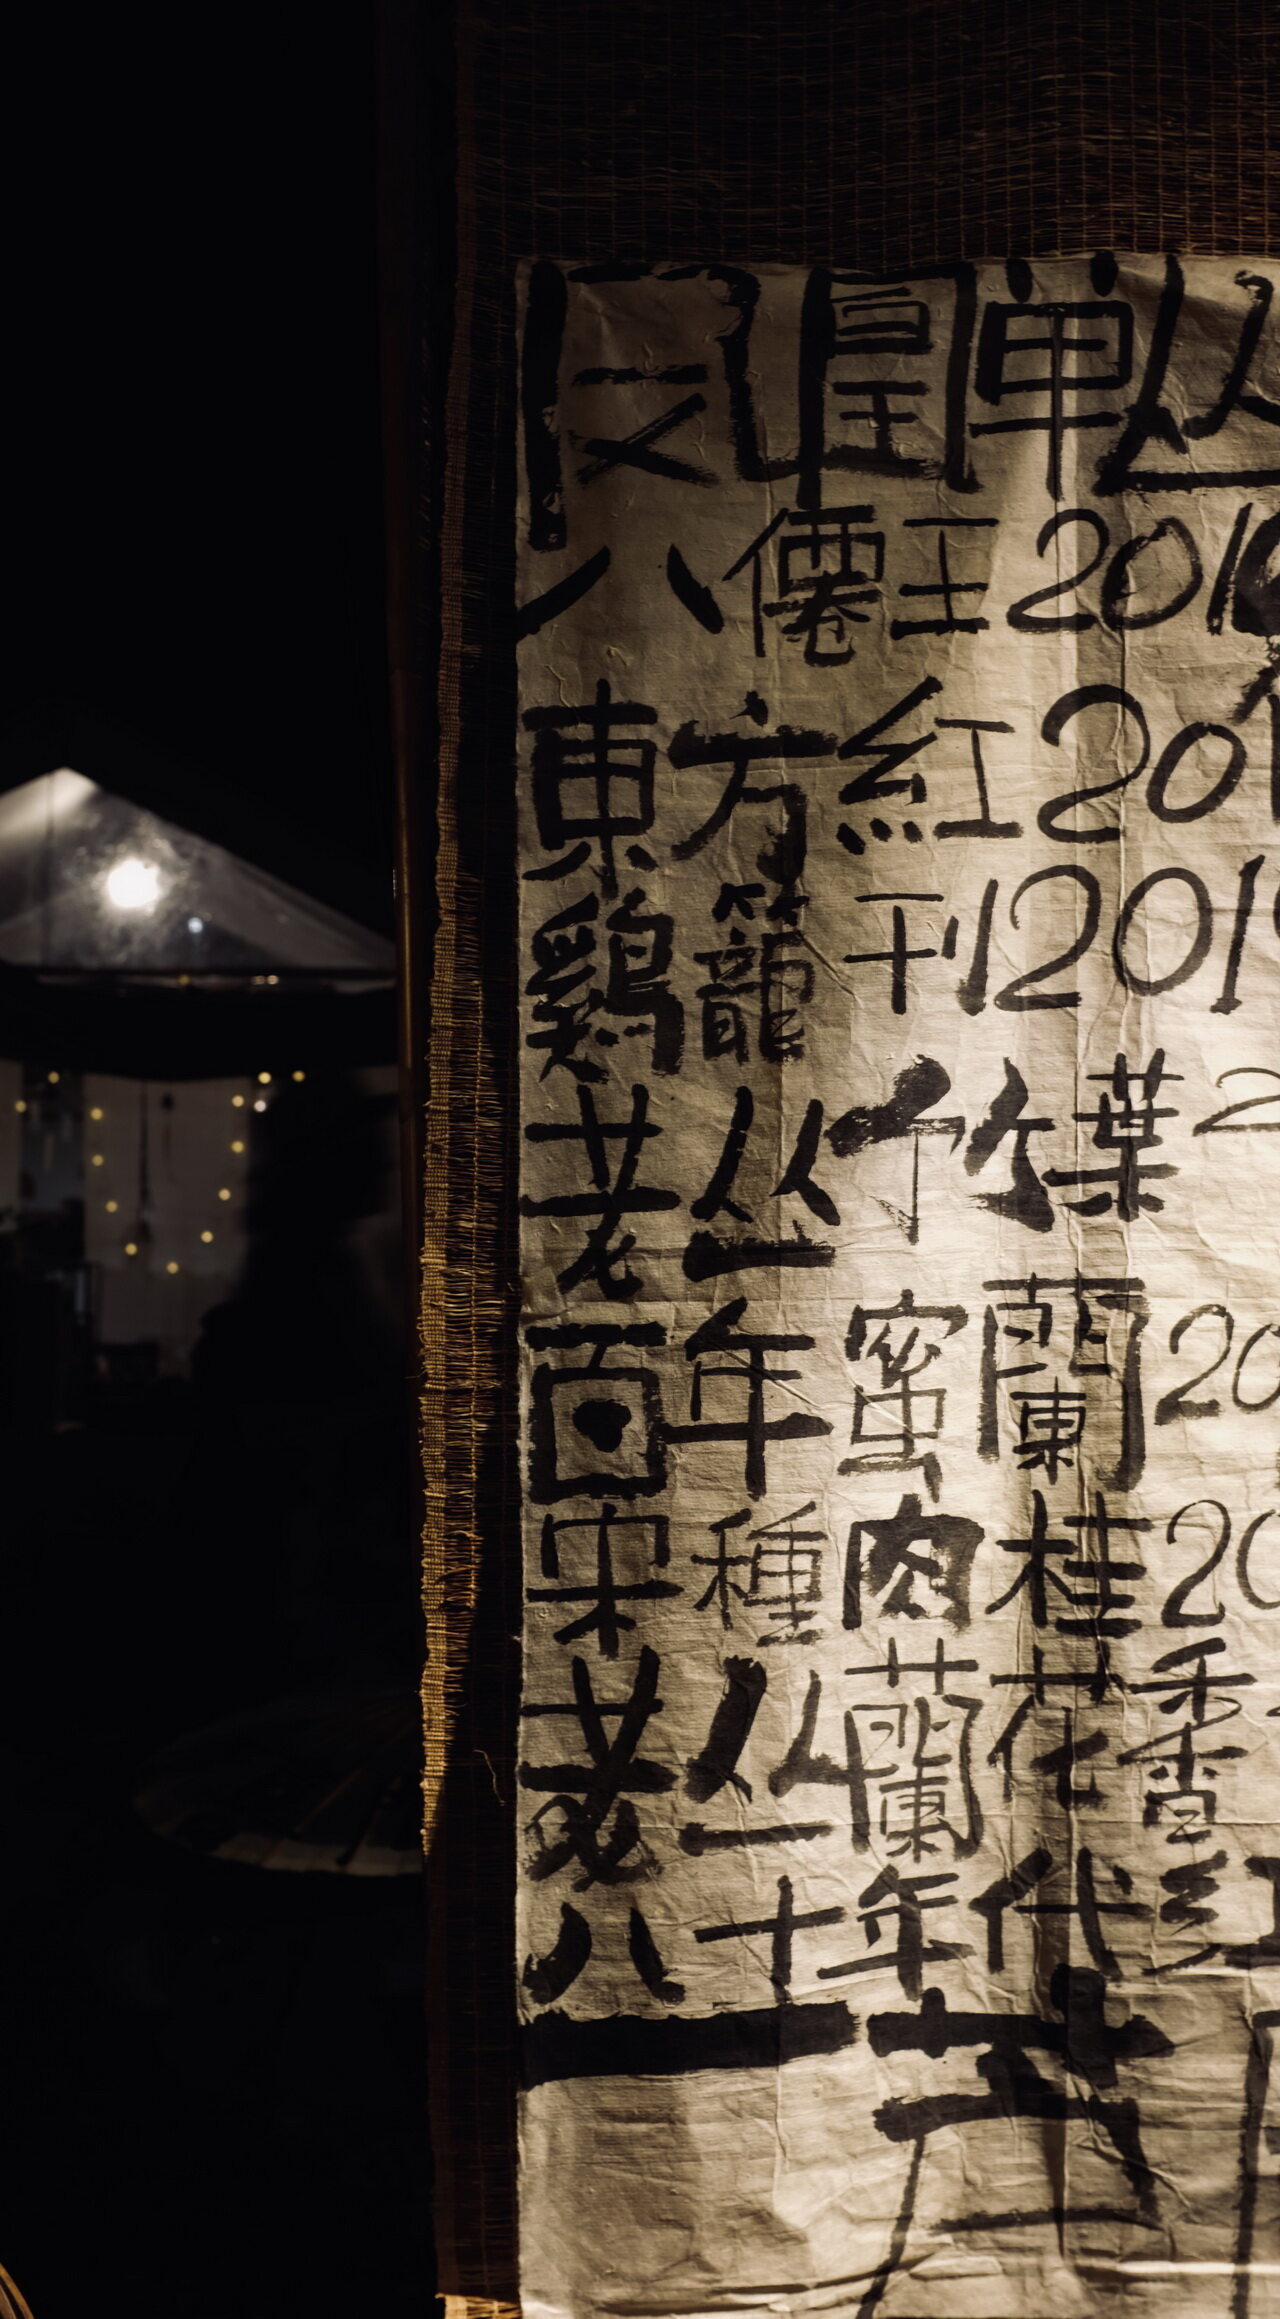 凤凰单丛
八僊王201
東方紅20
鷄籠刊201
老丛竹葉2
百年蜜蘭20
宋種肉桂20
老丛蘭花香
八十年代紅